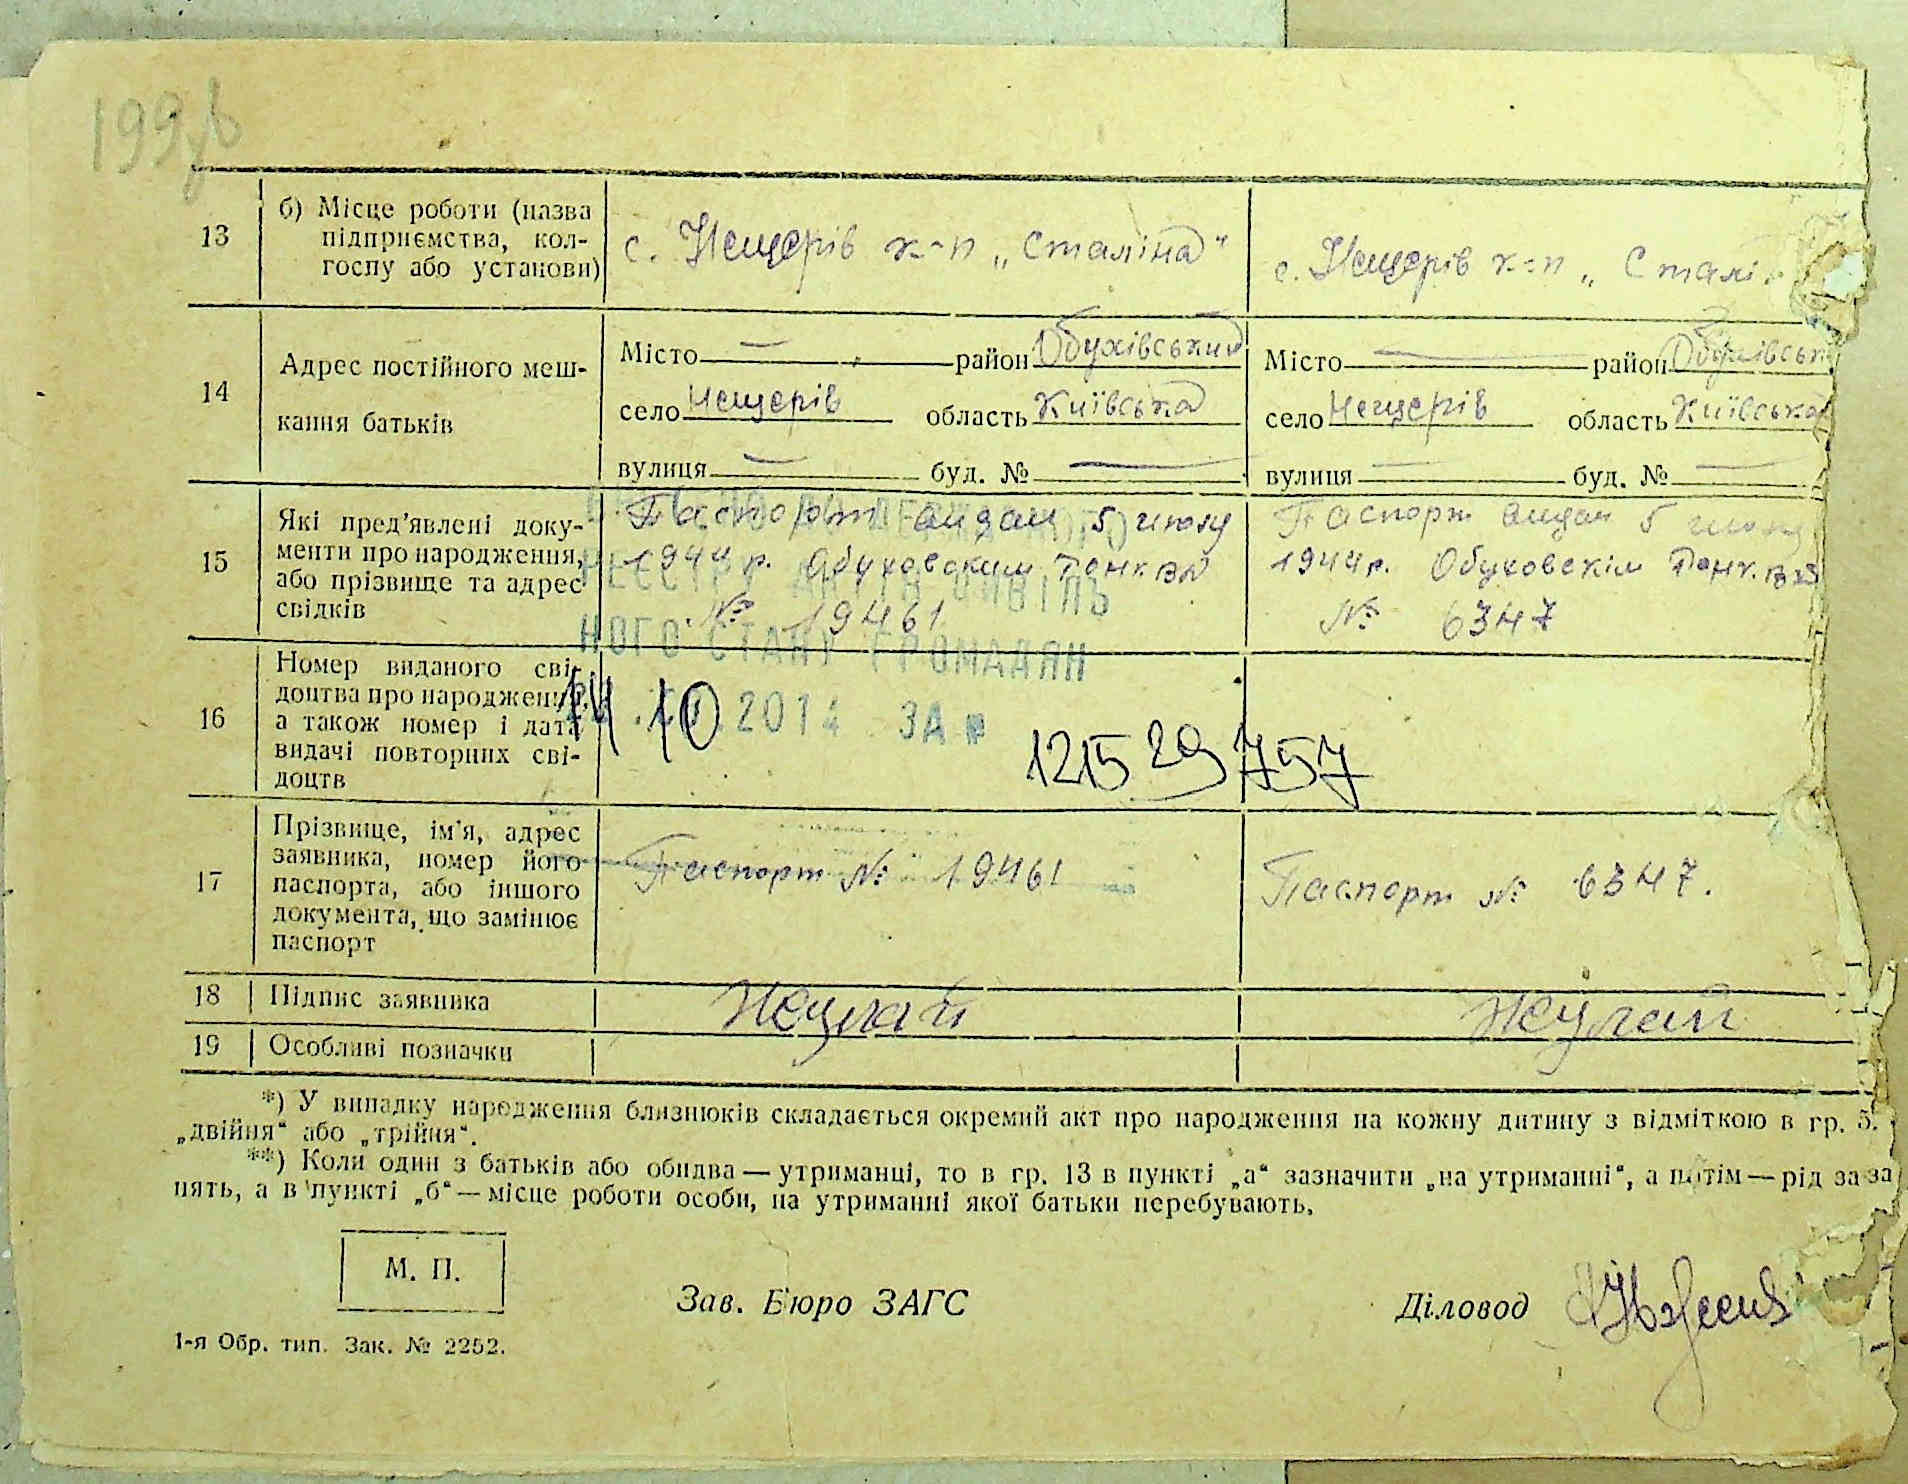 199
13
б) Місце роботи (назва
підприємства, кол-
госпу або установи)
с. Нещерів к-п „Сталіна"
с. Нещерів к-п „Сталі
14
Адрес постійного меш-
кання батьків
Місто — район Обухівський
село Нещерів область Київська
вулиця — буд. № —
Місто — район Обухівськ
село Нещерів область Київська
вулиця — буд. № —
15
Які пред'явлені доку-
менти про народження,
або прізвище та адрес
свідків
Паспорт видан 5 июня
1944 р. Обуховским
№ 19461
Паспорт видан 5 июня
1944 р. Обуховскім
№ 6347
16
Номер виданого сві-
доцтва про народження,
а також номер і дата
видачі повторних сві-
доцтв
НОГО СТАНУ ГРОМАДЯН
14.10.2014 ЗА №
121529757
17
Прізвище, ім'я, адрес
заявника, номер його
паспорта, або іншого
документа, що замінює
паспорт
Паспорт № 19461
Паспорт № 6347.
18
Підпис заявника
19
Особливі позначки
*) У випадку народження близнюків складається окремий акт про народження на кожну дитину з відміткою в гр. 5.
„двійня" або „трійня".
**) Коли один з батьків або обидва — утриманці, то в гр. 13 в пункті „а" зазначити „на утриманні", а потім — рід за за
нять, а в пункті „б" — місце роботи особи, на утриманні якої батьки перебувають,
М. П.
Зав. Бюро ЗАГС
Діловод
1-я Обр. тип. Зак. № 2252.